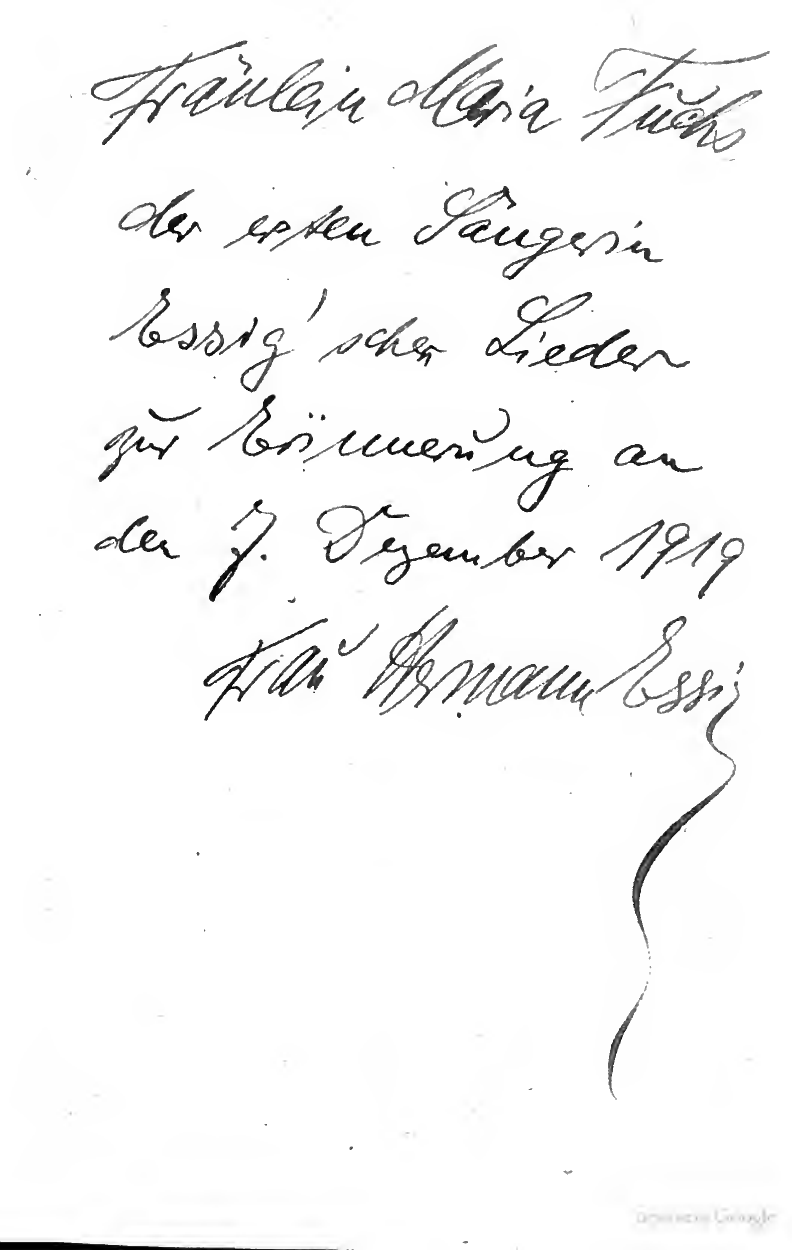 Fräulein Maria Fuchs
der ersten Sängerin
Essig'scher Lieder
zur Erinnerung an
den 7. Dezember 1919
Frau Hermann Essig
Google